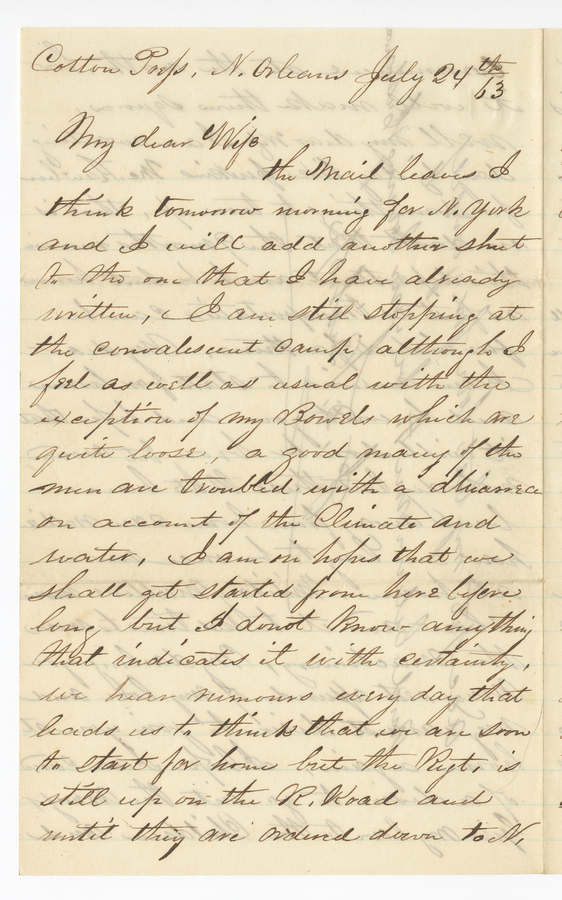 Cotton Press, N. Orleans July 24th
/63
My dear Wife
the Mail leaves I
think tomorrow morning for N. York
and I will add another sheet
to the one that I have already
written, I am still stopping at
the convalescent camp although I
feel as well as usual with the
exception of my Bowels which are
quite loose, a good many of the
men are troubled with a dhiarrea
on account of the Climate and
water, I am in hopes that we
shall get started from here before
long but I donot know anything
that indicates it with certainty,
we hear rumours every day that
leads us to think that we are soon
to start for home but the Regt, is
still up on the R. Road and
until they are ordered down to N.